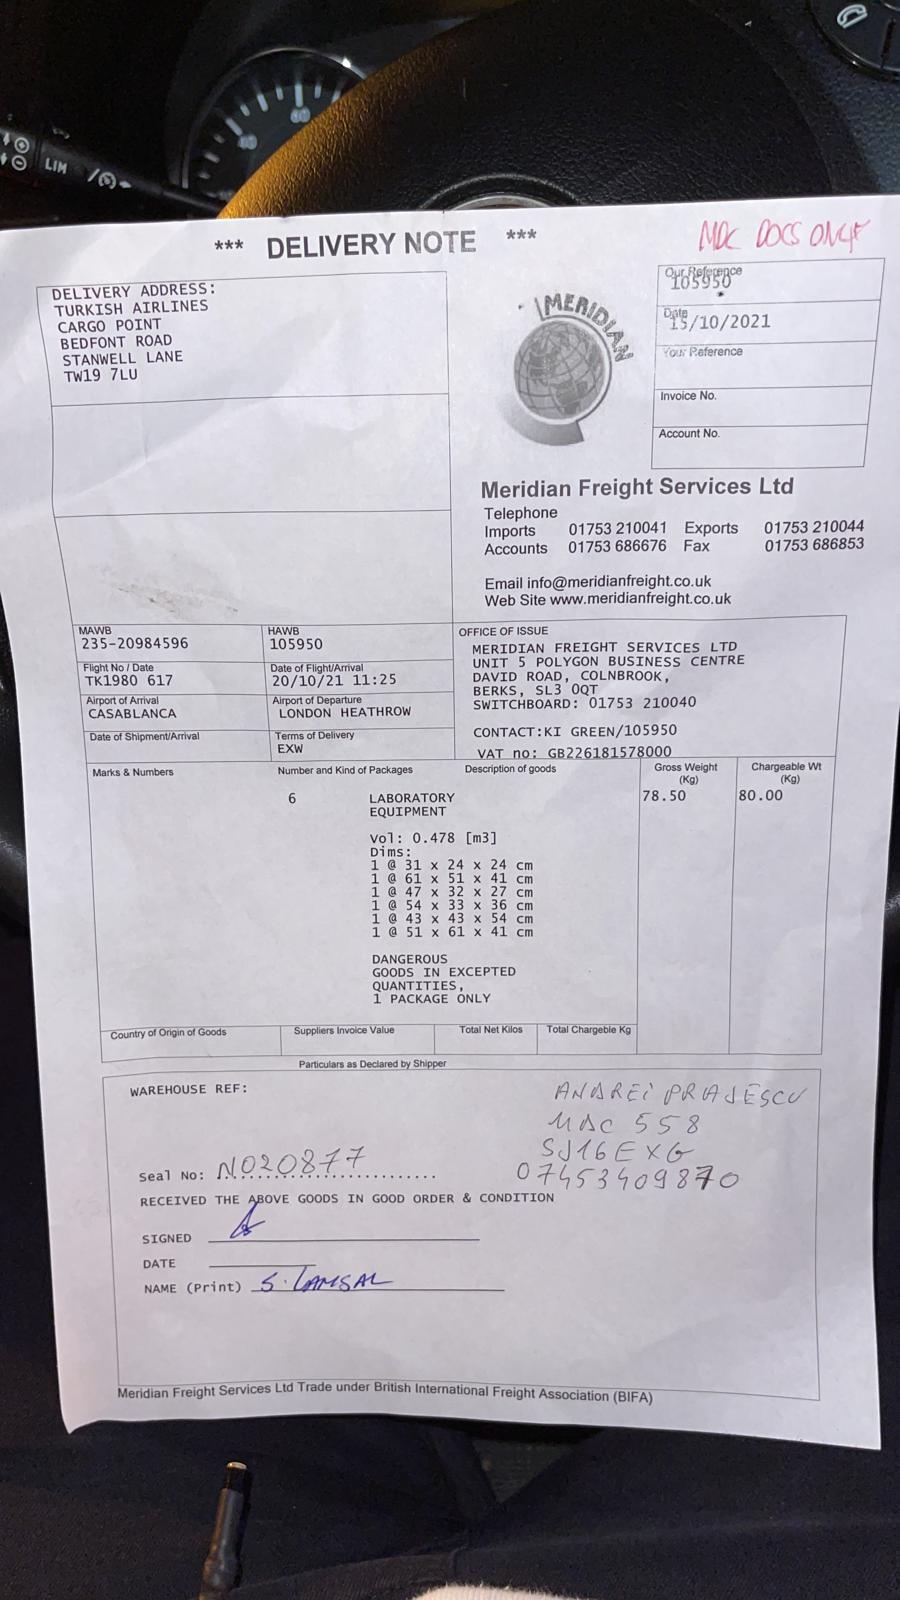 LIM
*** DELIVERY NOTE ***
MDC DOCS ONLY
DELIVERY ADDRESS:
TURKISH AIRLINES
CARGO POINT
BEDFONT ROAD
STANWELL LANE
TW19 7LU
MERIDIAN
Our Reference
105950
Date
15/10/2021
Your Reference
Invoice No.
Account No.
Meridian Freight Services Ltd
Telephone
Imports 01753 210041 Exports 01753 210044
Accounts 01753 686676 Fax 01753 686853
Email info@meridianfreight.co.uk
Web Site www.meridianfreight.co.uk
MAWB
235-20984596
HAWB
105950
Flight No / Date
TK1980 617
Date of Flight/Arrival
20/10/21 11:25
Airport of Arrival
CASABLANCA
Airport of Departure
LONDON HEATHROW
Date of Shipment/Arrival
Terms of Delivery
EXW
OFFICE OF ISSUE
MERIDIAN FREIGHT SERVICES LTD
UNIT 5 POLYGON BUSINESS CENTRE
DAVID ROAD, COLNBROOK,
BERKS, SL3 0QT
SWITCHBOARD: 01753 210040
CONTACT:KI GREEN/105950
VAT no: GB226181578000
Marks & Numbers
Number and Kind of Packages
Description of goods
Gross Weight
(Kg)
Chargeable Wt
(Kg)
6
LABORATORY
EQUIPMENT
78.50
80.00
Vol: 0.478 [m3]
Dims:
1 @ 31 x 24 x 24 cm
1 @ 61 x 51 x 41 cm
1 @ 47 x 32 x 27 cm
1 @ 54 x 33 x 36 cm
1 @ 43 x 43 x 54 cm
1 @ 51 x 61 x 41 cm
DANGEROUS
GOODS IN EXCEPTED
QUANTITIES,
1 PACKAGE ONLY
Country of Origin of Goods
Suppliers Invoice Value
Total Net Kilos
Total Chargeble Kg
Particulars as Declared by Shipper
WAREHOUSE REF:
ANDREI PRAJESCU
MDC 558
SJ16EXG
07453409870
Seal No: N020877
RECEIVED THE ABOVE GOODS IN GOOD ORDER & CONDITION
SIGNED
DATE
NAME (Print) S. LAMSAL
Meridian Freight Services Ltd Trade under British International Freight Association (BIFA)